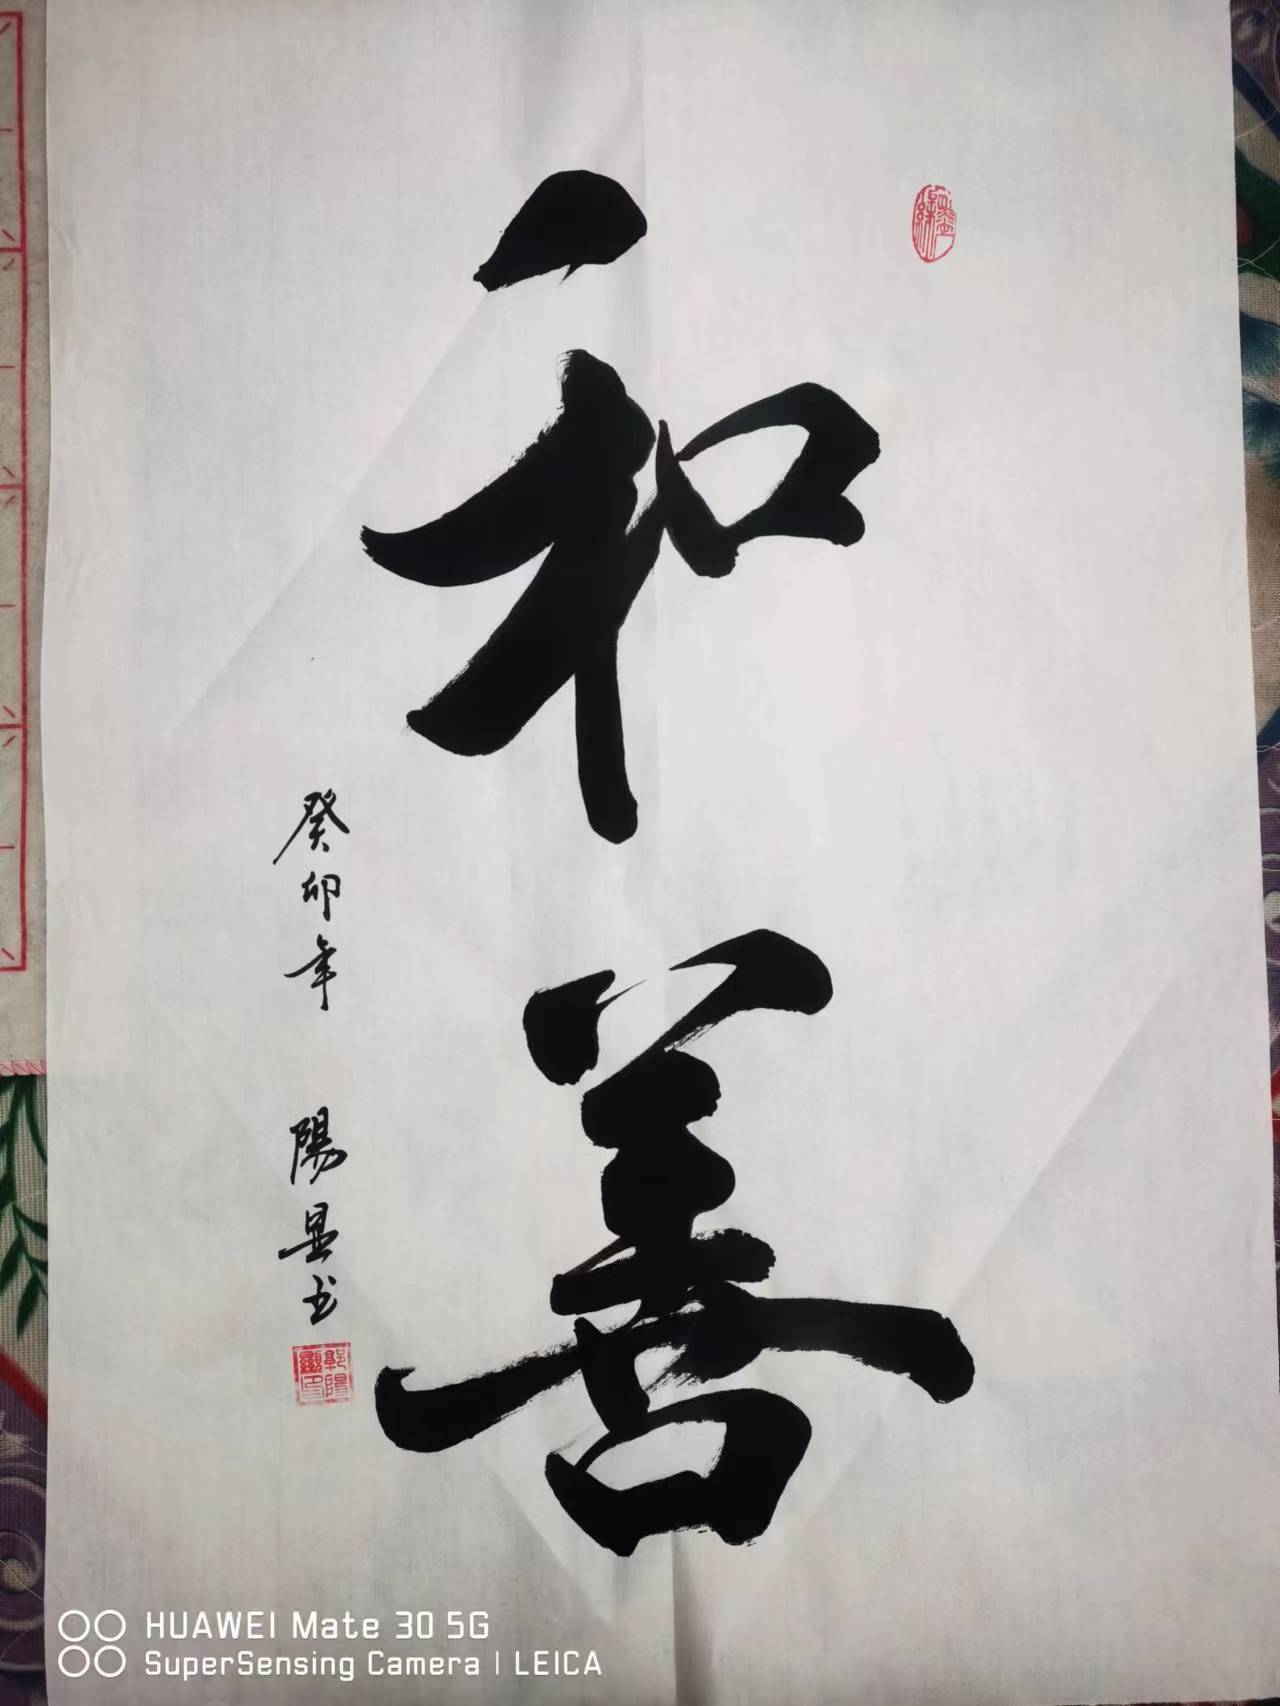 和善
癸卯年 陽显书
HUAWEI Mate 30 5G
SuperSensing Camera | LEICA